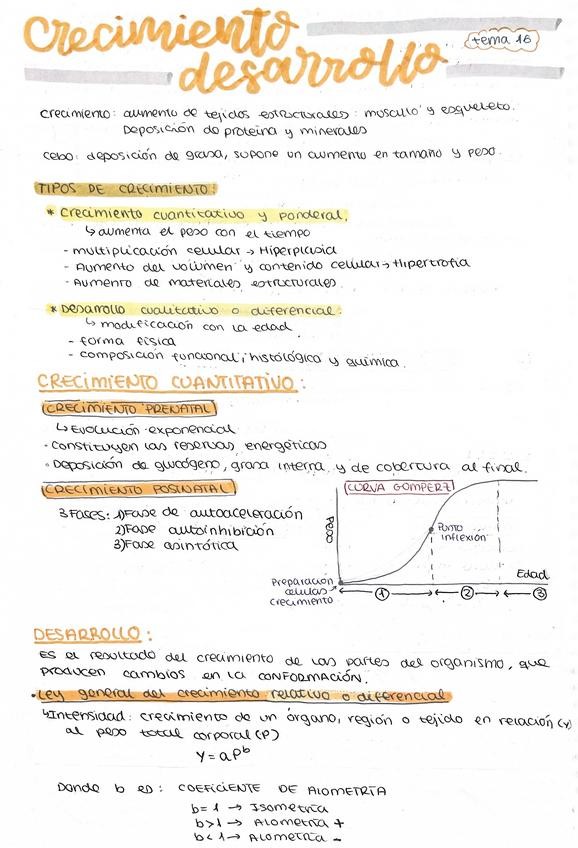 Crecimiento
desarrollo
tema 16
Crecimiento: aumento de tejidos estructurales: musculo y esqueleto.
Deposición de proteina y minerales
Cebo: deposición de grasa, supone un aumento en tamaño y peso.
TIPOS DE CRECIMIENTO:
* Crecimiento cuantitativo y ponderal.
↳ aumenta el peso con el tiempo
- multiplicación celular → Hiperplasia
- Aumento del volumen y contenido celular → Hipertrofia
- Aumento de materiales estructurales.
* Desarrollo cualitativo o diferencial:
↳ modificación con la edad
- forma física
- composición funcional, histológica y química.
CRECIMIENTO CUANTITATIVO:
CRECIMIENTO PRENATAL
↳ Evolución exponencial
· Constituyen las reservas energéticas
· Deposición de glucógeno, grasa interna y de cobertura al final.
CRECIMIENTO POSTNATAL
3 Fases: 1) Fase de autoaceleración
2) Fase autoinhibición
3) Fase asintótica
CURVA GOMPERZ
Peso
Punto
inflexión
Edad
Preparación
células
crecimiento
① ② ③
DESARROLLO:
Es el resultado del crecimiento de las partes del organismo, que
producen cambios en la conformación.
· Ley general del crecimiento relativo o diferencial
↳ Intensidad: crecimiento de un órgano, región o tejido en relación (y)
al peso total corporal (P)
Y = aPᵇ
Donde b es: COEFICIENTE DE ALOMETRÍA
b = 1 → Isometria
b > 1 → Alometria +
b < 1 → Alometria -